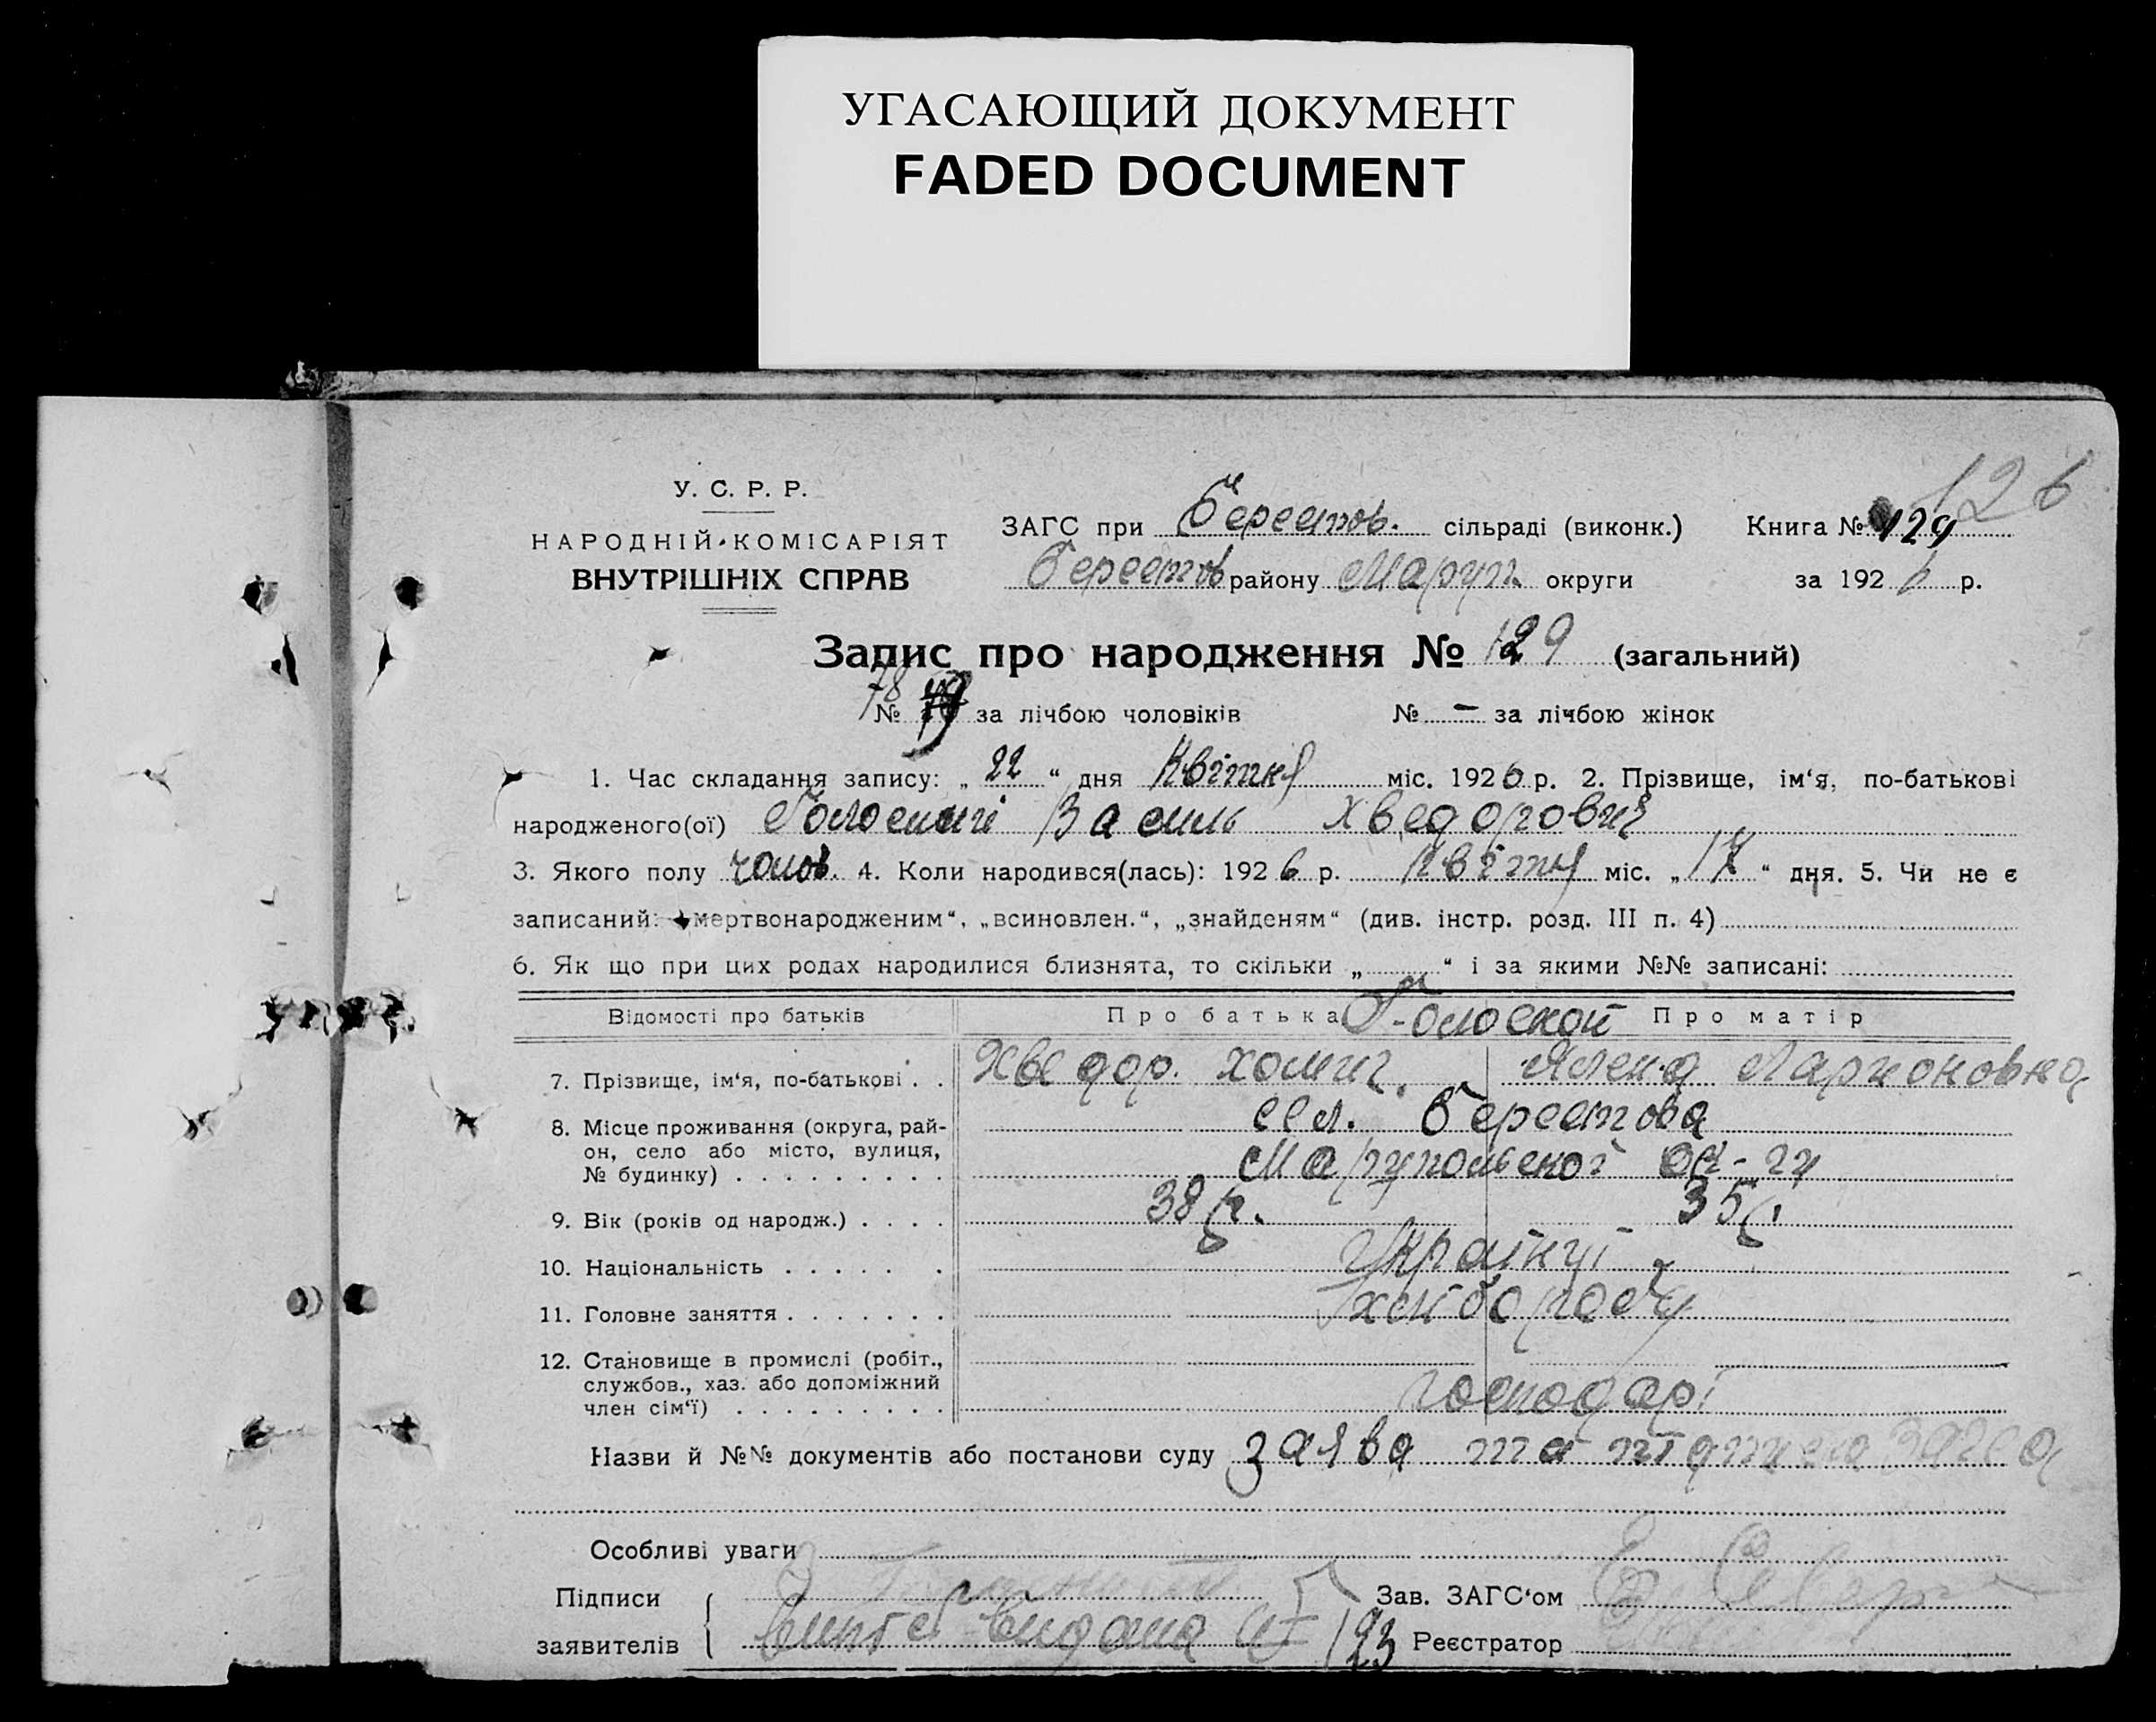 УГАСАЮЩИЙ ДОКУМЕНТ
FADED DOCUMENT
126
У. С. Р. Р.
НАРОДНІЙ КОМІСАРІЯТ
ВНУТРІШНІХ СПРАВ
ЗАГС при Берестов. сільраді (виконк.) Книга № 129
Берестов району Маруп округи за 1926 р.
Запис про народження № 129 (загальний)
78
№ за лічбою чоловіків № — за лічбою жінок
1. Час складання запису: „22“ дня Квітня міс. 1926 р. 2. Прізвище, ім‘я, по-батькові
народженого(ої) Василь Хведорович
3. Якого полу чолов. 4. Коли народився(лась): 1926 р. квітня міс. „17“ дня. 5. Чи не є
записаний: „мертвонародженим“, „всиновлен.“, „знайденям“ (див. інстр. розд. III п. 4)
6. Як що при цих родах народилися близнята, то скільки „ “ і за якими №№ записані:
Відомості про батьків Про батька Голоской Про матір
7. Прізвище, ім‘я, по-батькові . . Хведор. Хомич. Ларионовна
8. Місце проживання (округа, рай-
он, село або місто, вулиця,
№ будинку) . . . . . . . . . .
сел. Берестова
Марупольскої ок-ги
9. Вік (років од народж.) . . . . 38 р. 35 р.
10. Національність . . . . . . . Українці
11. Головне заняття . . . . . . . хліборобы
12. Становище в промислі (робіт.,
службов., хаз. або допоміжний
член сім‘ї) . . . . . . . . . .
господарі
Назви й №№ документів або постанови суду заява та загса
Особливі уваги
Підписи
заявителів
видана
93
Зав. ЗАГС‘ом
Реєстратор